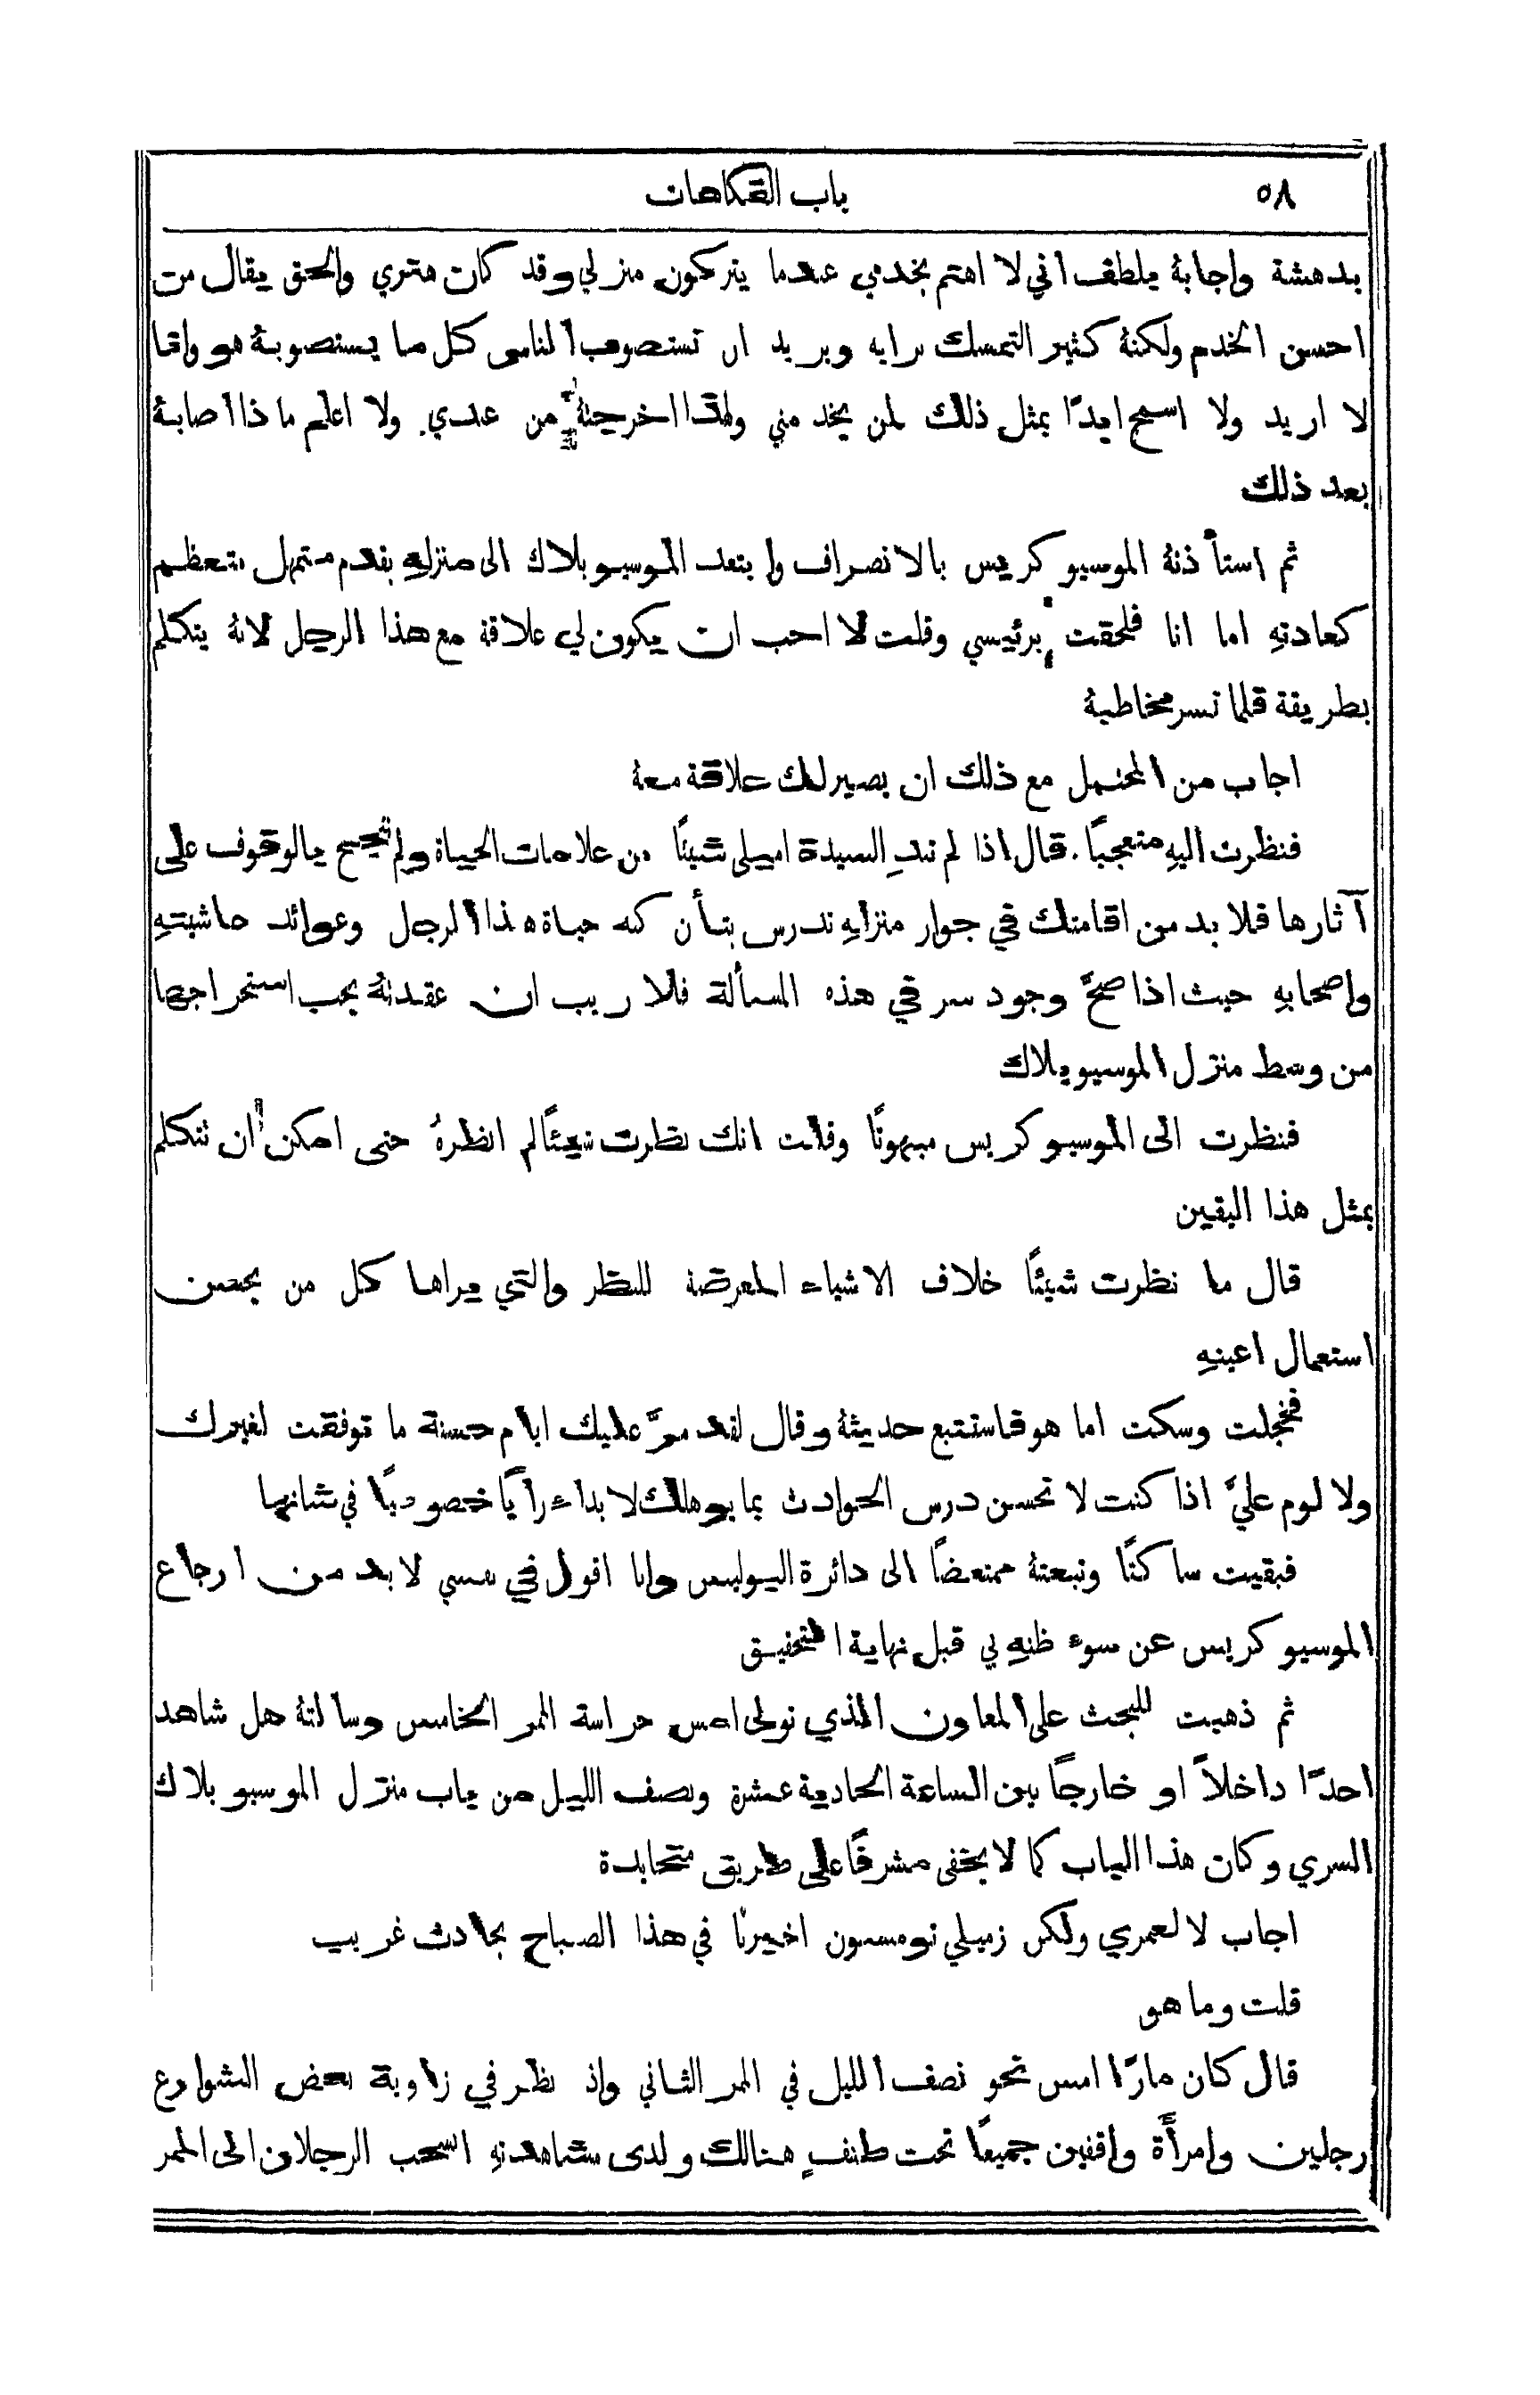 ٥٨ باب الفكاهات
بدهشة واجابهُ بلطف اني لا اهتم بخدمي عندما يتركون منزلي وقد كان هنري والحق يقال من
احسن الخدم ولكنهُ كثير التمسك برايه ويريد ان تستصوب الناس كل ما يستصوبهُ هو وانا
لا اريد ولا اسمح ابدًا بمثل ذلك لمن يخدمني ولهذا اخرجتهُ من عندي. ولا اعلم ماذا اصابهُ
بعد ذلك
ثم استأذنهُ الموسيو كريس بالانصراف وابتعد الموسيو بلاك الى منزلهِ بقدم متمهل متعظم
كعادتهِ اما انا فلحقت برئيسي وقلت لا احب ان يكون لي علاقة مع هذا الرجل لانهُ يتكلم
بطريقة قلما تسر مخاطبهُ
اجاب من المحتمل مع ذلك ان يصير لك علاقة معهُ
فنظرت اليهِ متعجبًا. قال اذا لم تبدِ السيدة اميلي شيئًا من علامات الحياة ولم تنجح بالوقوف على
آثارها فلا بد من اقامتك في جوار منزلهِ تدرس بتأن كنه حياة هذا الرجل وعوائد حاشيتهِ
واصحابهِ حيث اذا صحَّ وجود سر في هذه المسألة فلا ريب ان عقدتهُ يجب استخراجها
من وسط منزل الموسيو بلاك
فنظرت الى الموسيو كريس مبهوتًا وقلت انك نظرت شيئًا لم انظرهُ حتى امكن ان تتكلم
بمثل هذا اليقين
قال ما نظرت شيئًا خلاف الاشياء المعرضة للنظر والتي يراها كل من يحسن
استعمال اعينهِ
فخجلت وسكت اما هو فاستتبع حديثهُ وقال لقد مرَّ عليك ايام حسنة ما توفقت لغيرك
ولا لوم عليَّ اذا كنت لا تحسن درس الحوادث بما يوهلك لابداء رأيًا خصوصيًا في شانها
فبقيت ساكتًا وتبعتهُ ممتعضًا الى دائرة البوليس وانا اقول في نفسي لا بد من ارجاع
الموسيو كريس عن سوء ظنهِ بي قبل نهاية التحقيق
ثم ذهبت للبحث على المعاون الذي تولى امس حراسة الممر الخامس وسالتهُ هل شاهد
احدًا داخلاً او خارجًا بين الساعة الحادية عشرة ونصف الليل من باب منزل الموسيو بلاك
السري وكان هذا الباب كما لا يخفى مشرفًا على طريق متحايدة
اجاب لا لعمري ولكن زميلي تومسون اخبرنا في هذا الصباح بحادث غريب
قلت وما هو
قال كان مارًا امس نحو نصف الليل في الممر الثاني واذ نظر في زاوية بعض الشوارع
رجلين وامرأة واقفين جميعًا تحت طنفٍ هنالك ولدى مشاهدتهِ انسحب الرجلان الى الممر